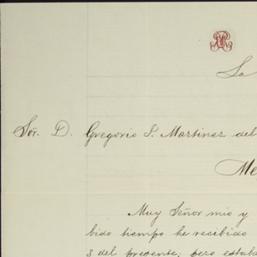 La
Sor. D. Gregorio S. Martinez del
Me
Muy Señor mio y
bido tiempo he recibido
3 del presente, pero estaba